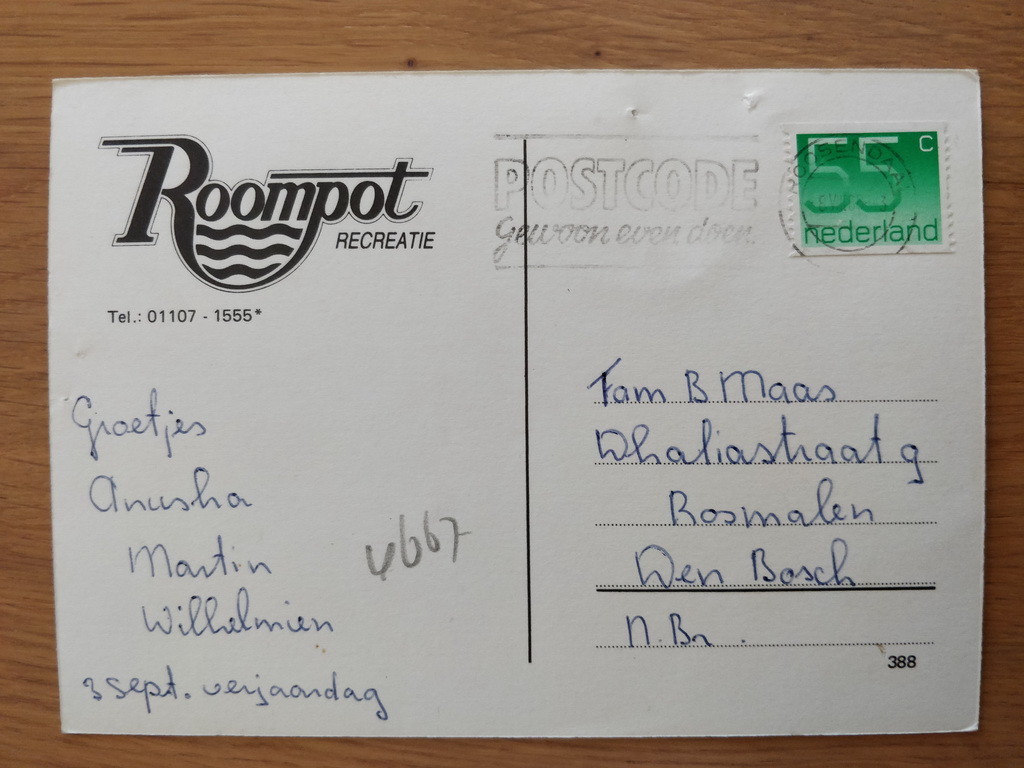 Roompot
RECREATIE
Tel.: 01107 - 1555*
Groetjes
Anusha
Martin
Wilhelmien
3 sept. verjaardag
4667
POSTCODE
Gewoon even doen.
55 C
nederland
Fam B Maas
Whaliastraat 9
Rosmalen
Den Bosch
N. Br.
388